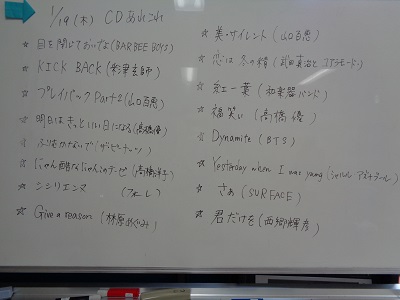 1/19(木) CDあれこれ
☆ 目を閉じておいでよ(BARBEE BOYS)
☆ KICK BACK(米津玄師)
☆ プレイバックPart2(山口百恵)
☆ 明日はきっといい日になる(高橋優)
☆ ふりむかないで(ザ・ピーナッツ)
☆ (高橋洋子)
☆ シシリエンヌ (フォーレ)
☆ Give a reason (林原めぐみ)
☆ 美・サイレント(山口百恵)
☆ 恋は冬の精(武田真治と)
☆ 紅一葉(和楽器バンド)
☆ 福笑い(高橋優)
☆ Dynamite (BTS)
☆ Yesterday when I was young (シャルル アズナブール)
☆ さぁ(SURFACE)
☆ 君だけを(西郷輝彦)